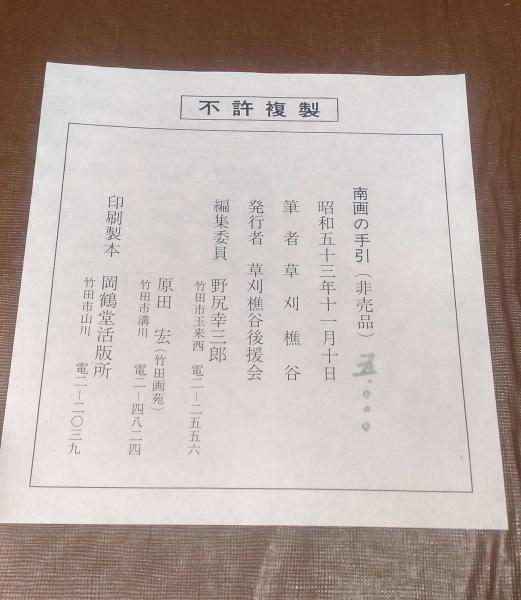 不許複製
南画の手引(非売品)
五.000
昭和五十三年十一月十日
筆者 草刈樵谷
発行者 草刈樵谷後援会
編集委員 野尻幸三郎
竹田市玉来西 電二ー二五五六
原田 宏(竹田画苑)
竹田市溝川 電二ー四八二四
印刷製本 岡鶴堂活版所
竹田市山川 電二ー二〇三九